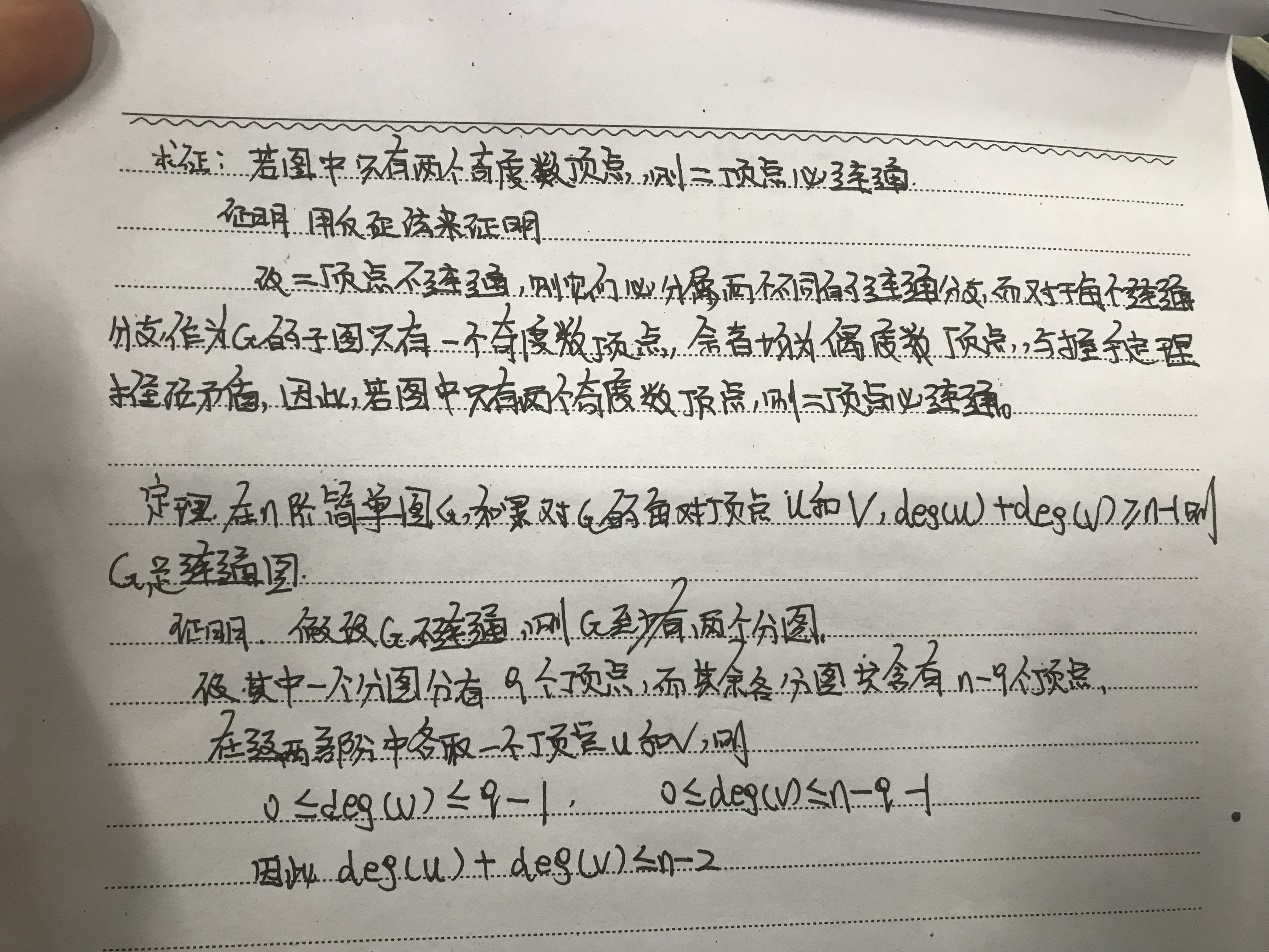 求证：若图中只有两个奇度数顶点，则二顶点必连通.
证明 用反证法来证明
设二顶点不连通，则它们必分属两个不同的连通分支，而对于每个连通
分支，作为G的子图只有一个奇度数顶点，余者均为偶度数顶点，与握手定理
推论矛盾，因此，若图中只有两个奇度数顶点，则二顶点必连通。
定理.在n阶简单图G，如果对G的每对顶点 u和 v，deg(u)+deg(v)≥n-1则
G是连通图.
证明. 假设G不连通，则G至少有两个分图.
设其中一个分图分有 q个顶点，而其余各分图共含有 n-q个顶点，
在这两部份中各取一个顶点u和v，则
0≤deg(u)≤q-1， 0≤deg(v)≤n-q-1
因此 deg(u)+deg(v)≤n-2